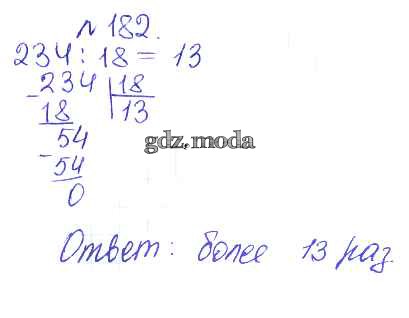 № 182.
234 : 18 = 13
- 234 | 18
18 | 13
54
- 54
0
gdz.moda
Ответ: более 13 раз.